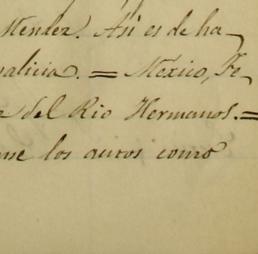 Mendez. Así es de ha_
alicia. = México, Fe_
del Rio Hermanos. =
se los autos como